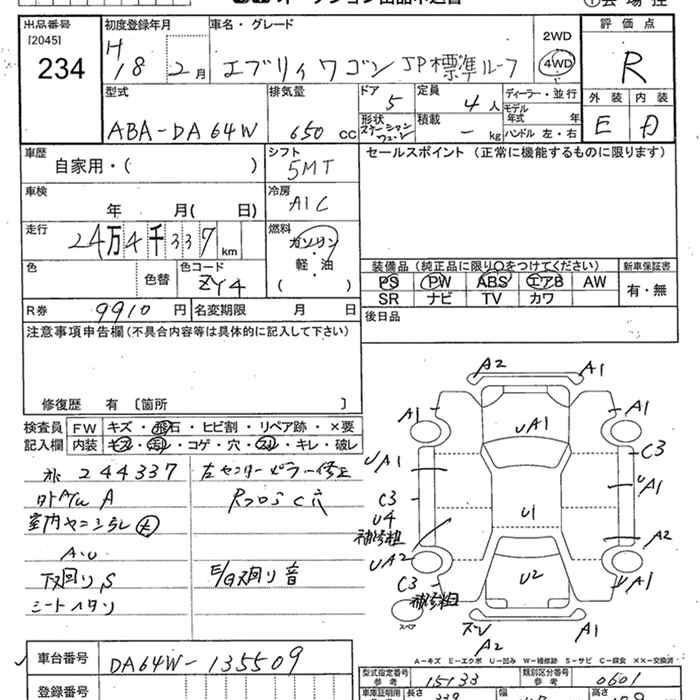 出品番号 初度登録年月 車名・グレード 評価点
[2045] 234
H 18 2月 エブリィワゴン JP標準ルーフ 2WD 4WD R
型式 排気量 ドア 5 定員 4人 ディーラー・並行 外装 内装
ABA-DA64W 650cc 形状 ステーションワゴン 積載 -kg モデル年式 年 ハンドル 左・右 E D
車歴 シフト セールスポイント (正常に機能するものに限ります)
自家用・( ) 5MT
車検 冷房
年 月( 日) A/C
走行 24万4千337km 燃料 ガソリン・軽・油( )
色 色替 色コード ZY4
装備品 (純正品に限り○をつけてください) 新車保証書
PS PW ABS エアB AW 有・無
SR ナビ TV カワ
R券 9910円 名変期限 月 日 後日品
注意事項申告欄(不具合内容等は具体的に記入して下さい)
修復歴 有 〔箇所 〕
検査員 FW キズ・飛石・ヒビ割・リペア跡・×要
記入欄 内装 キズ・汚れ・コゲ・穴・スレ・キレ・破レ
244337 左センターピラー修正
A RフロスC穴
室内ヤニシラレ大
A.U
下廻りS E/G廻り音
シートヘタリ
A2 A1
A1 UA1 A1
UA1 C3
C3 UA1
U4 補修粗 U1
UA2 A2
C3 補修粗 U2 A1
スペア ズレ A2 A1
A−キズ E−エクボ U−凹み W−補修跡 S−サビ C−腐食 ××−交換済
車台番号 DA64W-135509
型式指定番号 参考 15133 類別区分番号 参考 0601
登録番号 車庫証明用 長さ 339 幅 高さ